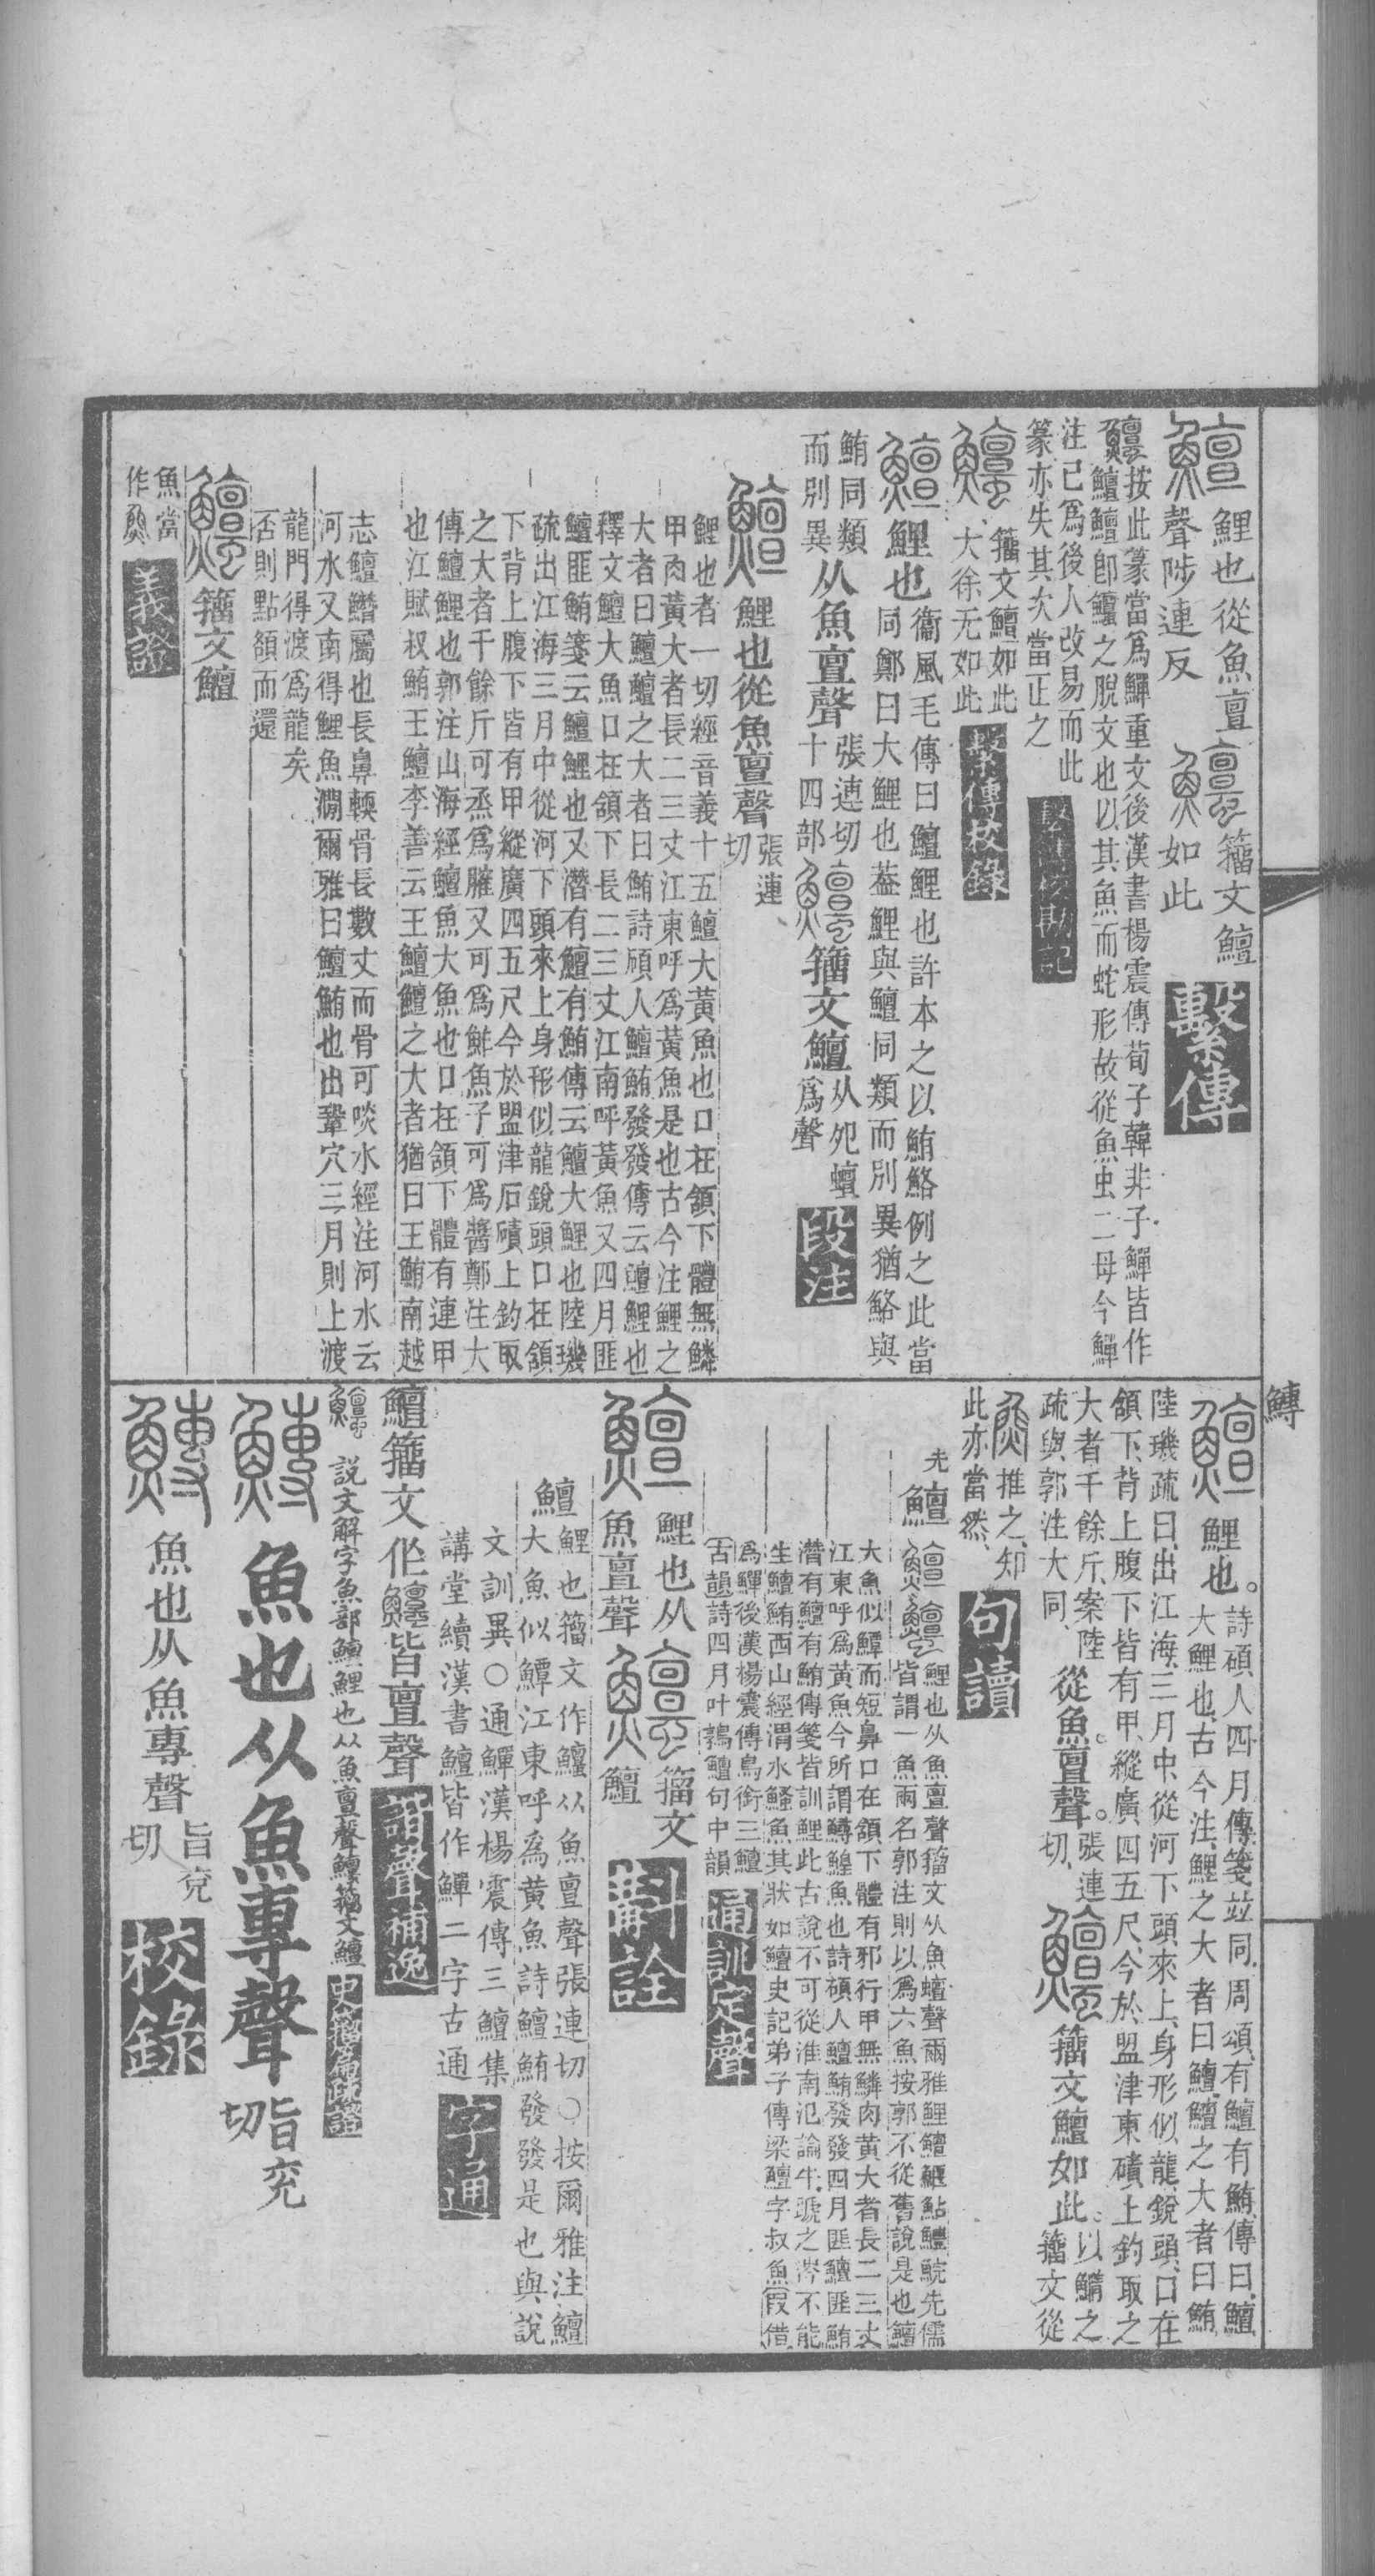 鱣
鯉也從魚亶
聲陟連反
籒文鱣
如此
繫傳
按此篆當爲鱓重文後漢書楊震傳荀子韓非子鱓皆作
鱣鱣卽鱣之脫文也以其魚而蛇形故從魚虫二母今鱓
注已爲後人改易而此
篆亦失其次當正之
繫傳校勘記
籒文鱣如此
大徐无如此
繫傳校錄
鱣
鯉也
衞風毛傳曰鱣鯉也許本之以鮪鮥例之此當
同鄭曰大鯉也葢鯉與鱣同類而別異猶鮥與
鮪同類
而別異
从魚亶聲
張連切
十四部
籒文鱣
从𧈡蟺
爲聲
段注
鱣
鯉也從魚亶聲
張連
切
鯉也者一切經音義十五鱣大黃魚也口在頷下體無鱗
甲肉黃大者長二三丈江東呼爲黃魚是也古今注鯉之
大者曰鱣鱣之大者曰鮪詩碩人鱣鮪發發傳云鱣鯉也
釋文鱣大魚口在頷下長二三丈江南呼黃魚又四月匪
鱣匪鮪箋云鱣鯉也又潛有鱣有鮪傳云鱣大鯉也陸璣
疏出江海三月中從河下頭來上身形似龍銳頭口在頷
下背上腹下皆有甲縱廣四五尺今於盟津石磧上釣取
之大者千餘斤可烝爲臛又可爲鮓魚子可爲醬鄭注大
傳鱣鯉也郭注山海經鱣魚大魚也口在頷下體有連甲
也江賦叔鮪王鱣李善云王鱣鱣之大者猶曰王鮪南越
志鱣鱕屬也長鼻輭骨長數丈而骨可啖水經注河水云
河水又南得鯉魚澗爾雅曰鱣鮪也出鞏穴三月則上渡
龍門得渡爲龍矣
否則點額而還
籒文鱣
魚當
作𤋳
義證
鱄
鱣
鯉也。
詩碩人四月傳箋竝同周頌有鱣有鮪傳曰鱣
大鯉也古今注鯉之大者曰鱣鱣之大者曰鮪
陸璣疏曰出江海三月中從河下頭來上身形似龍銳頭口在
頷下背上腹下皆有甲縱廣四五尺今於盟津東磧上釣取之
大者千餘斤案陸
疏與郭注大同
從魚亶聲。
張連
切
籒文鱣如此。
以鱅之
籒文從
推之知
此亦當然
句讀
先
鱣
鯉也从魚亶聲籒文从魚蟺聲爾雅鯉鱣鰋鮎鱧鯇先儒
皆謂一魚兩名郭注則以爲六魚按郭不從舊說是也鱣
大魚似鱏而短鼻口在頷下體有邪行甲無鱗肉黃大者長二三丈
江東呼爲黃魚今所謂鱘鰉魚也詩碩人鱣鮪發發四月匪鱣匪鮪
潛有鱣有鮪傳箋皆訓鯉此古說不可從淮南氾論牛蹏之涔不能
生鱣鮪西山經渭水鰠魚其狀如鱣史記弟子傳梁鱣字叔魚叚借
爲鱓後漢楊震傳鳥銜三鱣
古韻詩四月叶鶉鱣句中韻
通訓定聲
鱣
鯉也从
魚亶聲
籒文
鱣
斠詮
鱣
鯉也籒文作鱣从魚亶聲張連切〇按爾雅注鱣
大魚似鱏江東呼爲黃魚詩鱣鮪發發是也與說
文訓異〇通鱓漢楊震傳三鱣集
講堂續漢書鱣皆作鱓二字古通
字通
鱣籒文作
皆亶聲
諧聲補逸
說文解字魚部鱣鯉也从魚亶聲鱣籒文鱣
史籒篇疏證
鱄
魚也从魚專聲
旨兗
切
鱄
魚也从魚專聲
旨兗
切
校錄